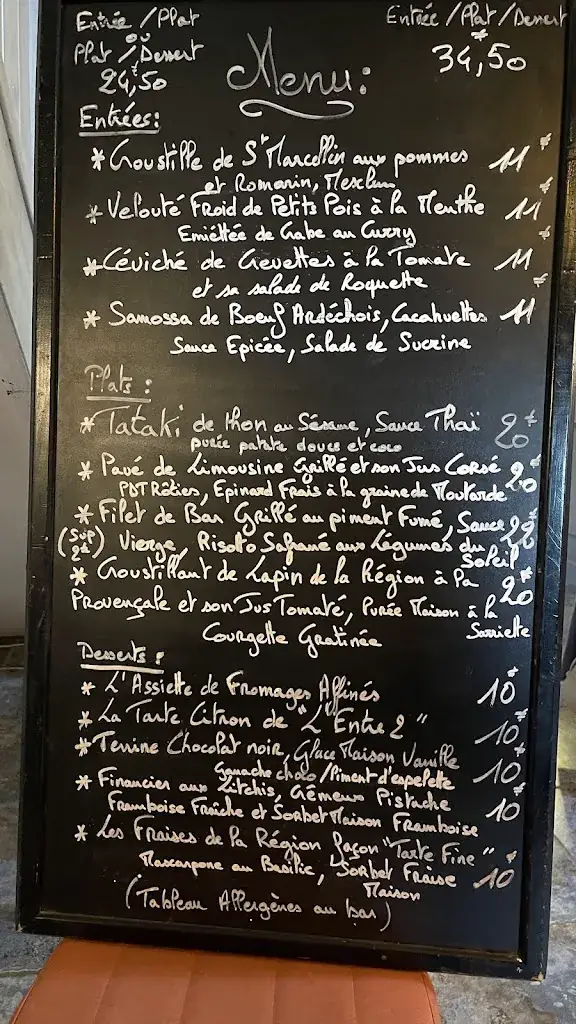 Entrée / Plat
ou
Plat / Dessert
24,50€
Entrée / Plat / Dessert
34,50€
Menu:
Entrées:
* Croustille de St Marcellin aux pommes 11€
et Romarin, Mesclun
* Velouté Froid de Petits Pois à la Menthe 11€
Emiéttée de Crabe au Curry
* Céviché de Crevettes à la Tomate 11€
et sa salade de Roquette
* Samossa de Boeuf Ardéchois, Cacahuettes 11€
Sauce Epicée, Salade de Sucrine
Plats:
* Tataki de thon au Sésame, Sauce Thaï 20€
purée patate douce et coco
* Pavé de Limousine Grillé et son Jus Corsé 20€
PDT Rôties, Epinard Frais à la graine de Moutarde
* Filet de Bar Grillé au piment Fumé, Sauce 22€
(Sup 2€) Vierge, Risotto Safrané aux Légumes du Soleil
* Croustillant de Lapin de la Région à la 20€
Provençale et son Jus Tomaté, Purée Maison à la Sarriette
Courgette Gratinée
Desserts:
* L'Assiette de Fromages Affinés 10€
* La Tarte Citron de "L'Entre 2" 10€
* Terrine Chocolat noir, Glace Maison Vanille 10€
Ganache choco / Piment d'espelette
* Financier aux Litchis, Crémeux Pistache 10€
Framboise Fraîche et Sorbet Maison Framboise
* Les Fraises de la Région façon "Tarte Fine"
Mascarpone au Basilic, Sorbet Fraise Maison 10€
(Tableau Allergènes au bar)